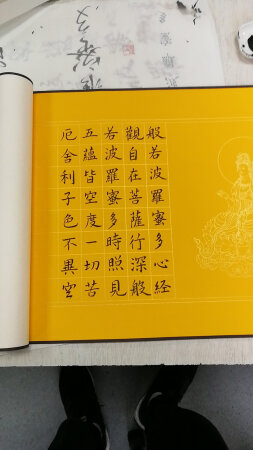 般若波羅蜜多心経
觀自在菩薩行深般
若波羅蜜多時照見
五蘊皆空度一切苦
厄舍利子色不異空